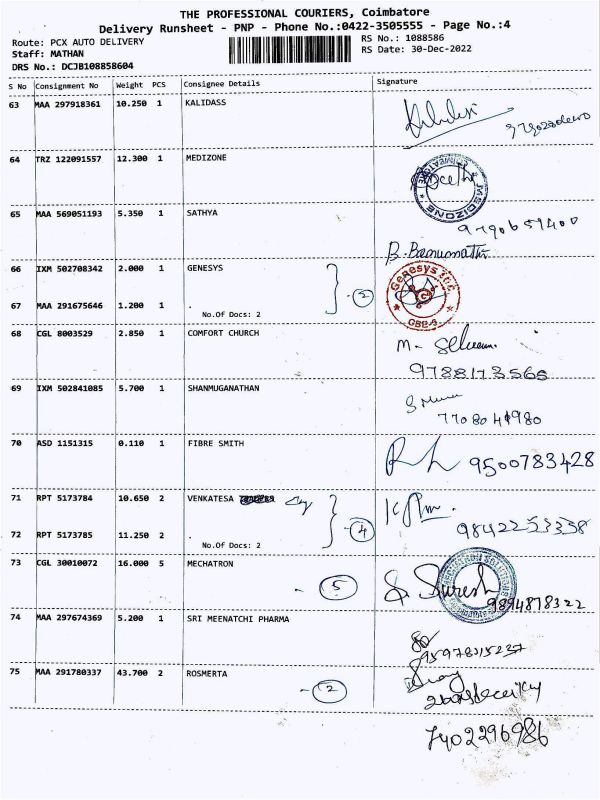 THE PROFESSIONAL COURIERS, Coimbatore
Delivery Runsheet - PNP - Phone No.:0422-3505555 - Page No.:4
Route: PCX AUTO DELIVERY
RS No.: 1088586
Staff: MATHAN
RS Date: 30-Dec-2022
DRS No.: DCJB108858604
S No Consignment No Weight PCS Consignee Details Signature
63 MAA 297918361 10.250 1 KALIDASS
64 TRZ 122091557 12.300 1 MEDIZONE
MEDIZONE
65 MAA 569051193 5.350 1 SATHYA
9790651400
B. Banumathi
66 IXM 502708342 2.000 1 GENESYS
(2)
Genesys Inc.
67 MAA 291675646 1.200 1 .
CBE-9
No.Of Docs: 2
68 CGL 8003529 2.850 1 COMFORT CHURCH
M. Selvam
9788173566
69 IXM 502841085 5.700 1 SHANMUGANATHAN
7708041980
70 ASD 1151315 0.110 1 FIBRE SMITH
9500783428
71 RPT 5173784 10.650 2 VENKATESA
(4)
9842253338
72 RPT 5173785 11.250 2 .
No.Of Docs: 2
73 CGL 30010072 16.000 5 MECHATRON
- (5)
Suresh
9894878322
74 MAA 297674369 5.200 1 SRI MEENATCHI PHARMA
75 MAA 291780337 43.700 2 ROSMERTA
- (2)
7402296986